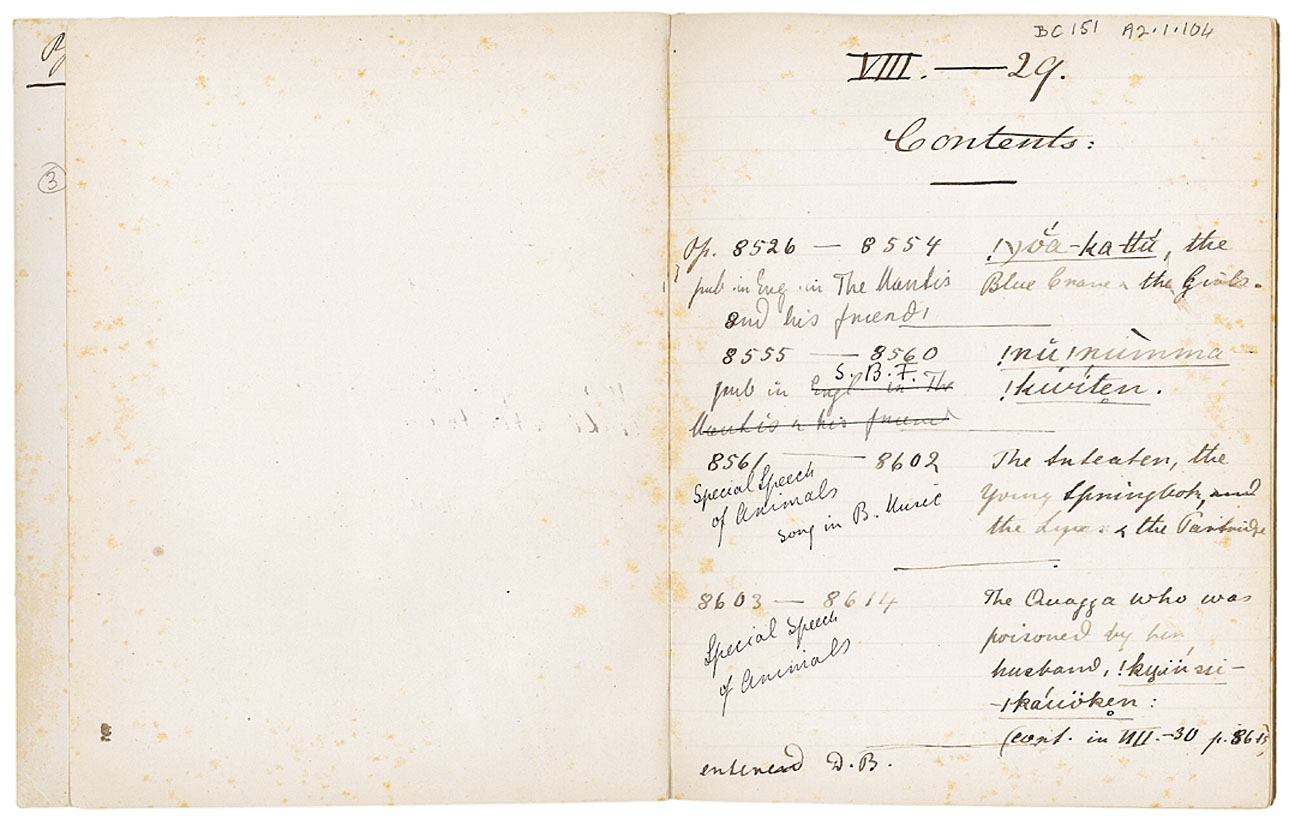 ③
BC 151 A2.1.104
VIII. — 29.
Contents:
Op. 8526 — 8554 !γŏá-ka ttú, the
pub. in Eng. in The Mantis Blue Crane & the Girls.
and his friend
8555 — 8560 !nŭ!nùmma-
S. B. F.
pub in Engl in The !kúïten.
Mantis & his friend
8561 — 8602 The Anteater, the
Special Speech Young Springbok, and
of Animals the Lynx & the Partridge
song in B. Music
8603 — 8614 The Quagga who was
Special Speech poisoned by her
of Animals husband,
(cont. in VIII.—30 p. 8615
entered D.B.